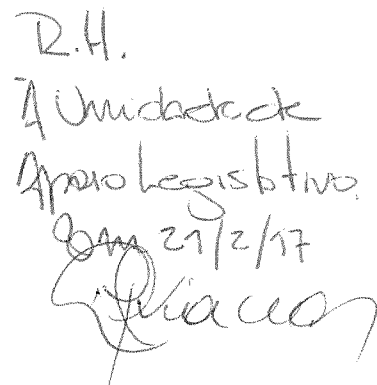 R.H.
À Unidade de
Apoio Legislativo.
Em 21/2/17